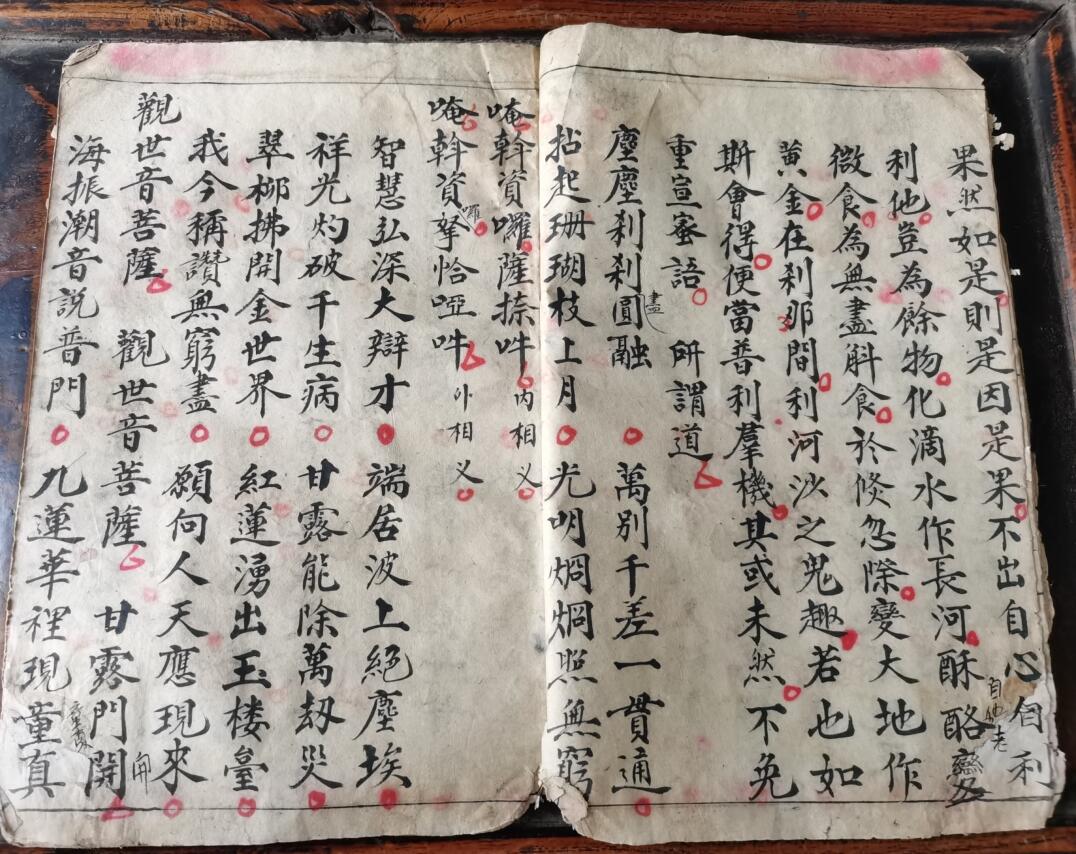 果然如是則是因是果不出自心自利
利他豈為餘物化滴水作長河酥酪變
微食為無盡斛食於倐忽際變大地作
黃金在刹那間利河沙之鬼趣若也如
斯會得便當普利羣機其或未然不免
重宣密語 所謂道
塵塵刹刹圓融 萬別千差一貫通
盡
拈起珊瑚枝上月 光明烱烱照無窮
唵斡資囉薩捺吽 内相义
唵斡資拏恰啞吽 外相义
囉
智慧弘深大辯才 端居波上絕塵埃
祥光灼破千生病 甘露能除萬刼災
翠柳拂開金世界 紅蓮湧出玉楼臺
我今稱讚無窮盡 願向人天應現來
觀世音菩薩 觀世音菩薩 甘露門開
海振潮音説普門 九蓮華裡現童真